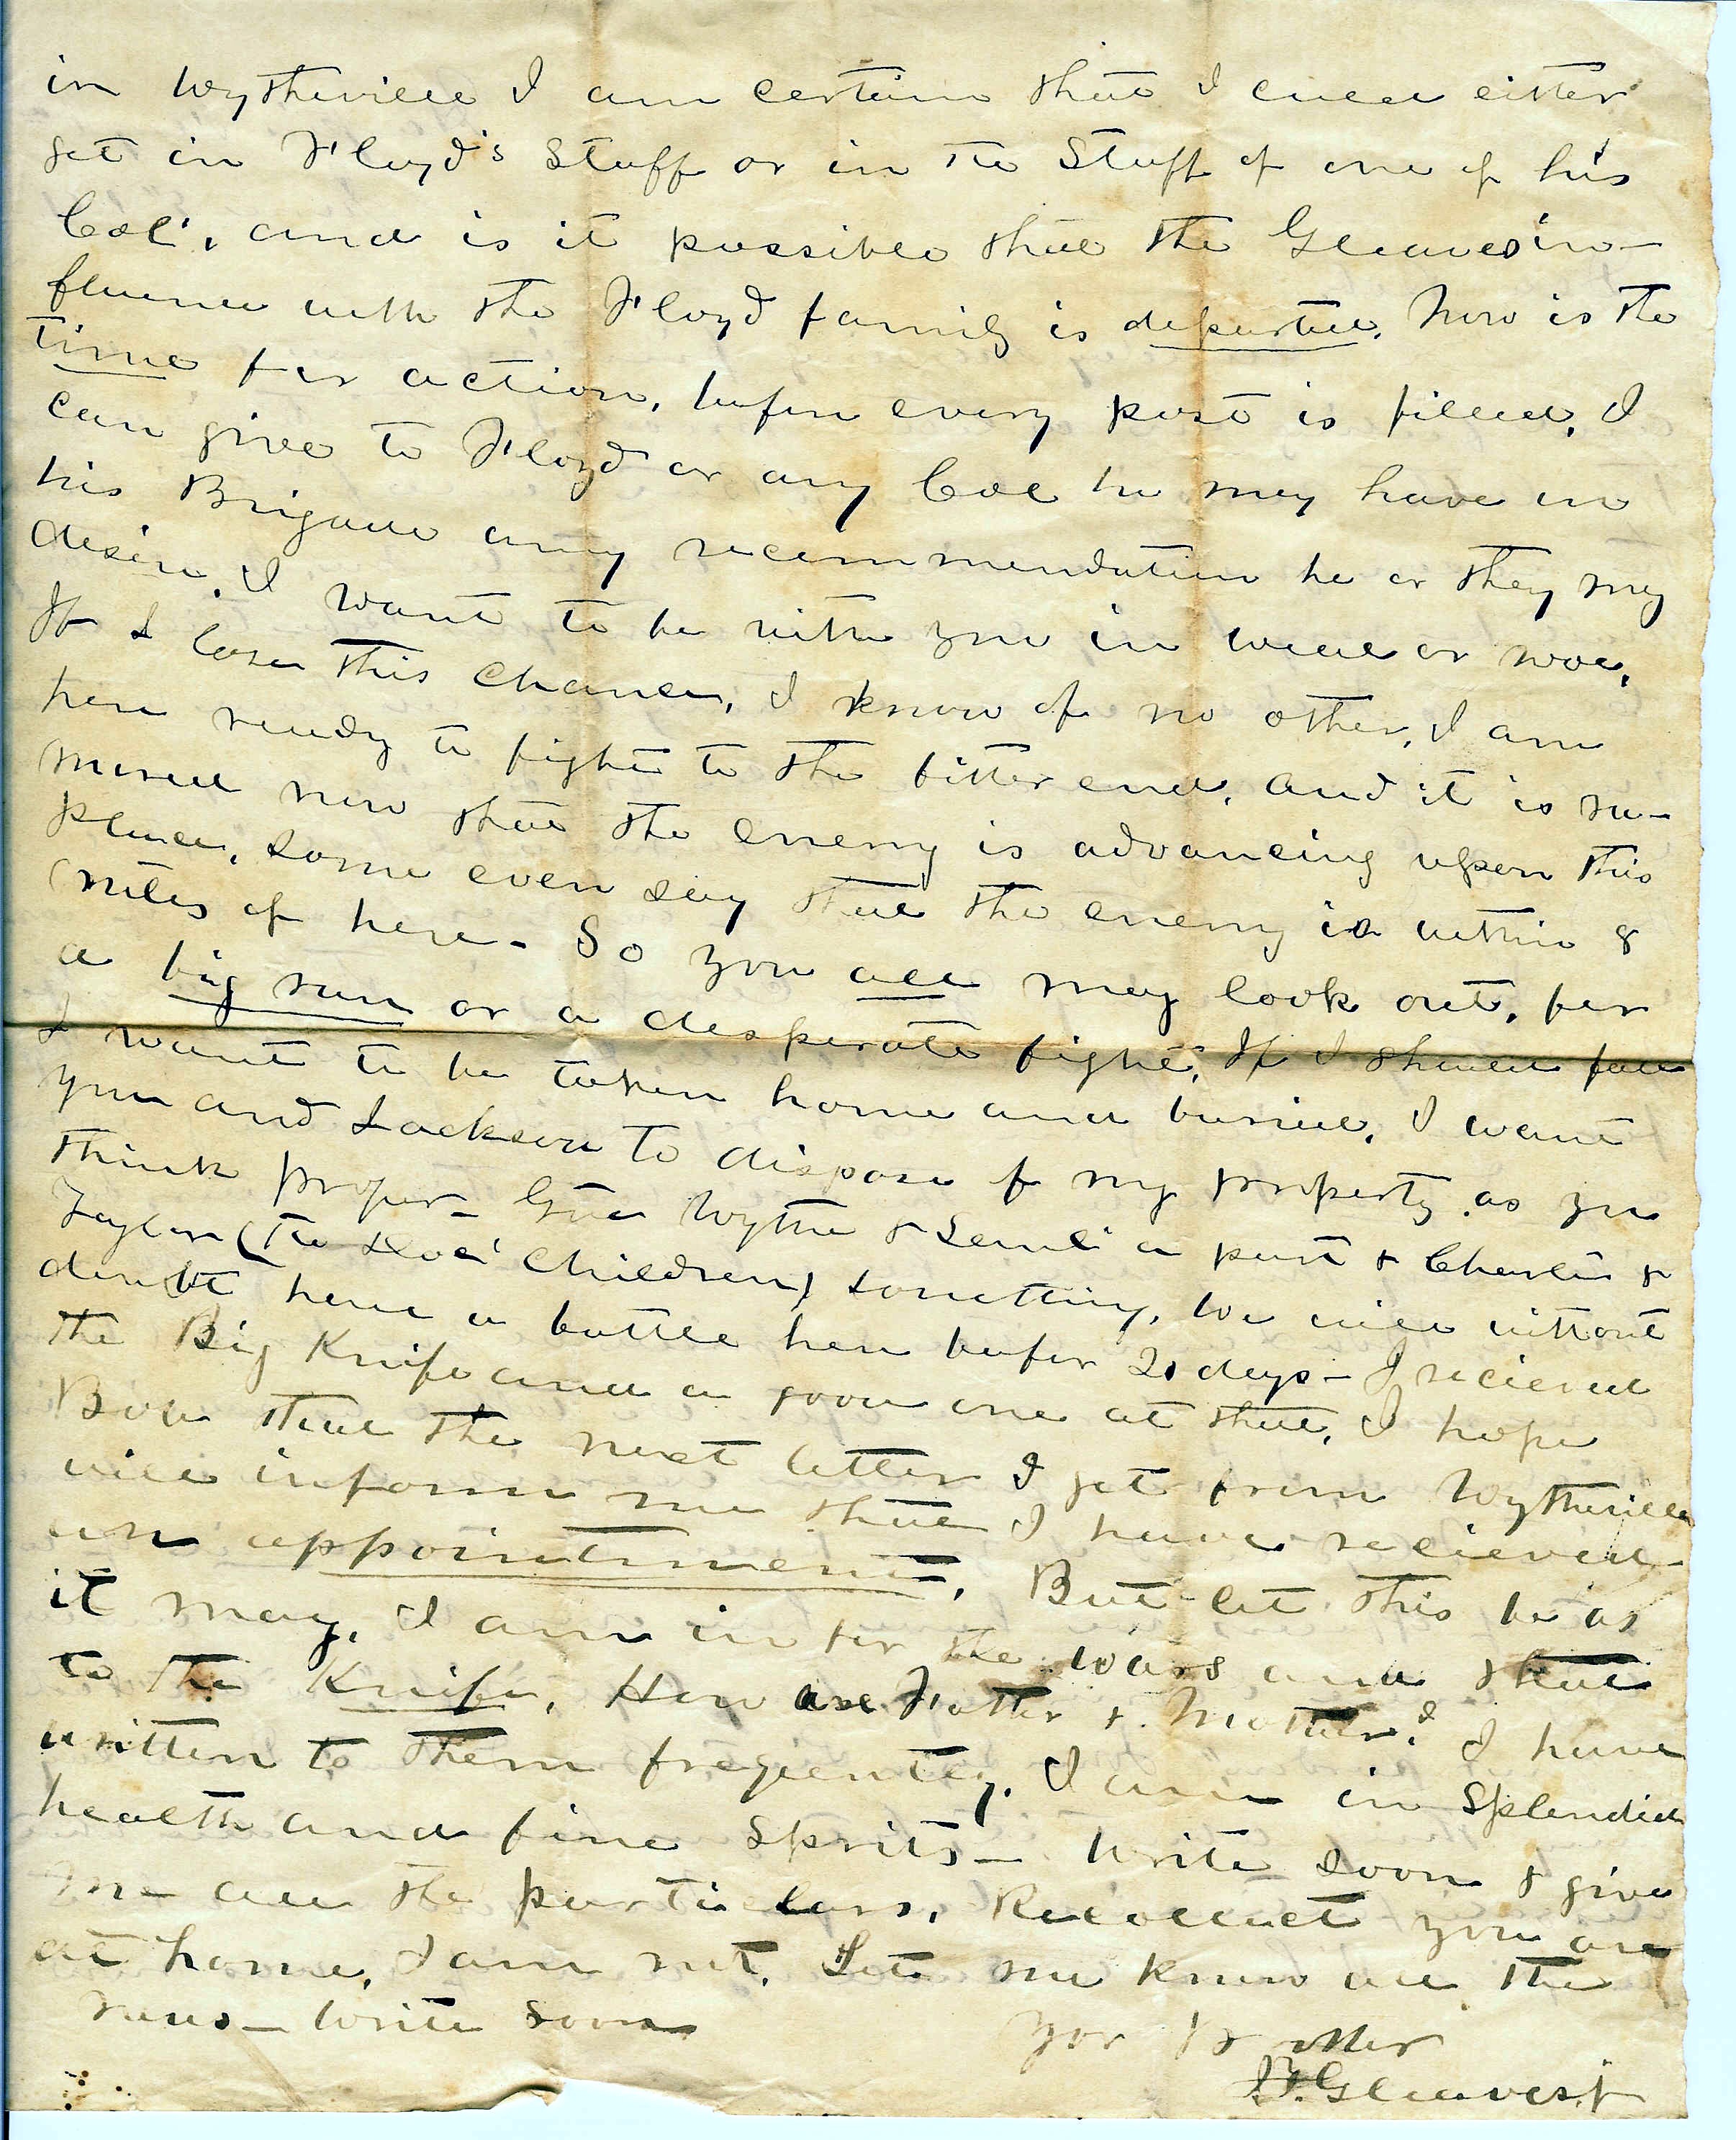 in Wytheville I am certain that I could either
get in Floyd's Staff or in the Staff of one of his
Col', and is it possible that the Gleaves in-
fluence with the Floyd family is departed. Now is the
time for action, before every post is filled, I
can give to Floyd or any Col he may have in
his Brigade any recommendation he or they may
desire. I want to be with you in weal or woe,
If I lose this chance, I know of no other, I am
here ready to fight to the bitter end, and it is ru-
mored now that the enemy is advancing upon this
place, some even say that the enemy is within 8
miles of here - So you all may look out, for
a big run or a desperate fight, If I should fall
I want to be taken home and buried, I want
you and Jackson to dispose of my property as you
think proper - Give Wythe & a part & Charlie &
Taylor (the children) something, We will without
doubt have a battle here before 20 days - I recieved
the Big Knife and a good one at that, I hope
Bob that the next letter I get from Wytheville
will inform me that I have recieved
an appointment, But let this be as
it may, I am in for the wars and that
to the Knife, How are Father & Mother? I have
written to them freqently. I am in splendid
health and fine sprits - Write soon & give
me all the particlars, Recollect you are
at home, I am not, Let me know all the
news - Write soon
Yor Brother
Gleaves